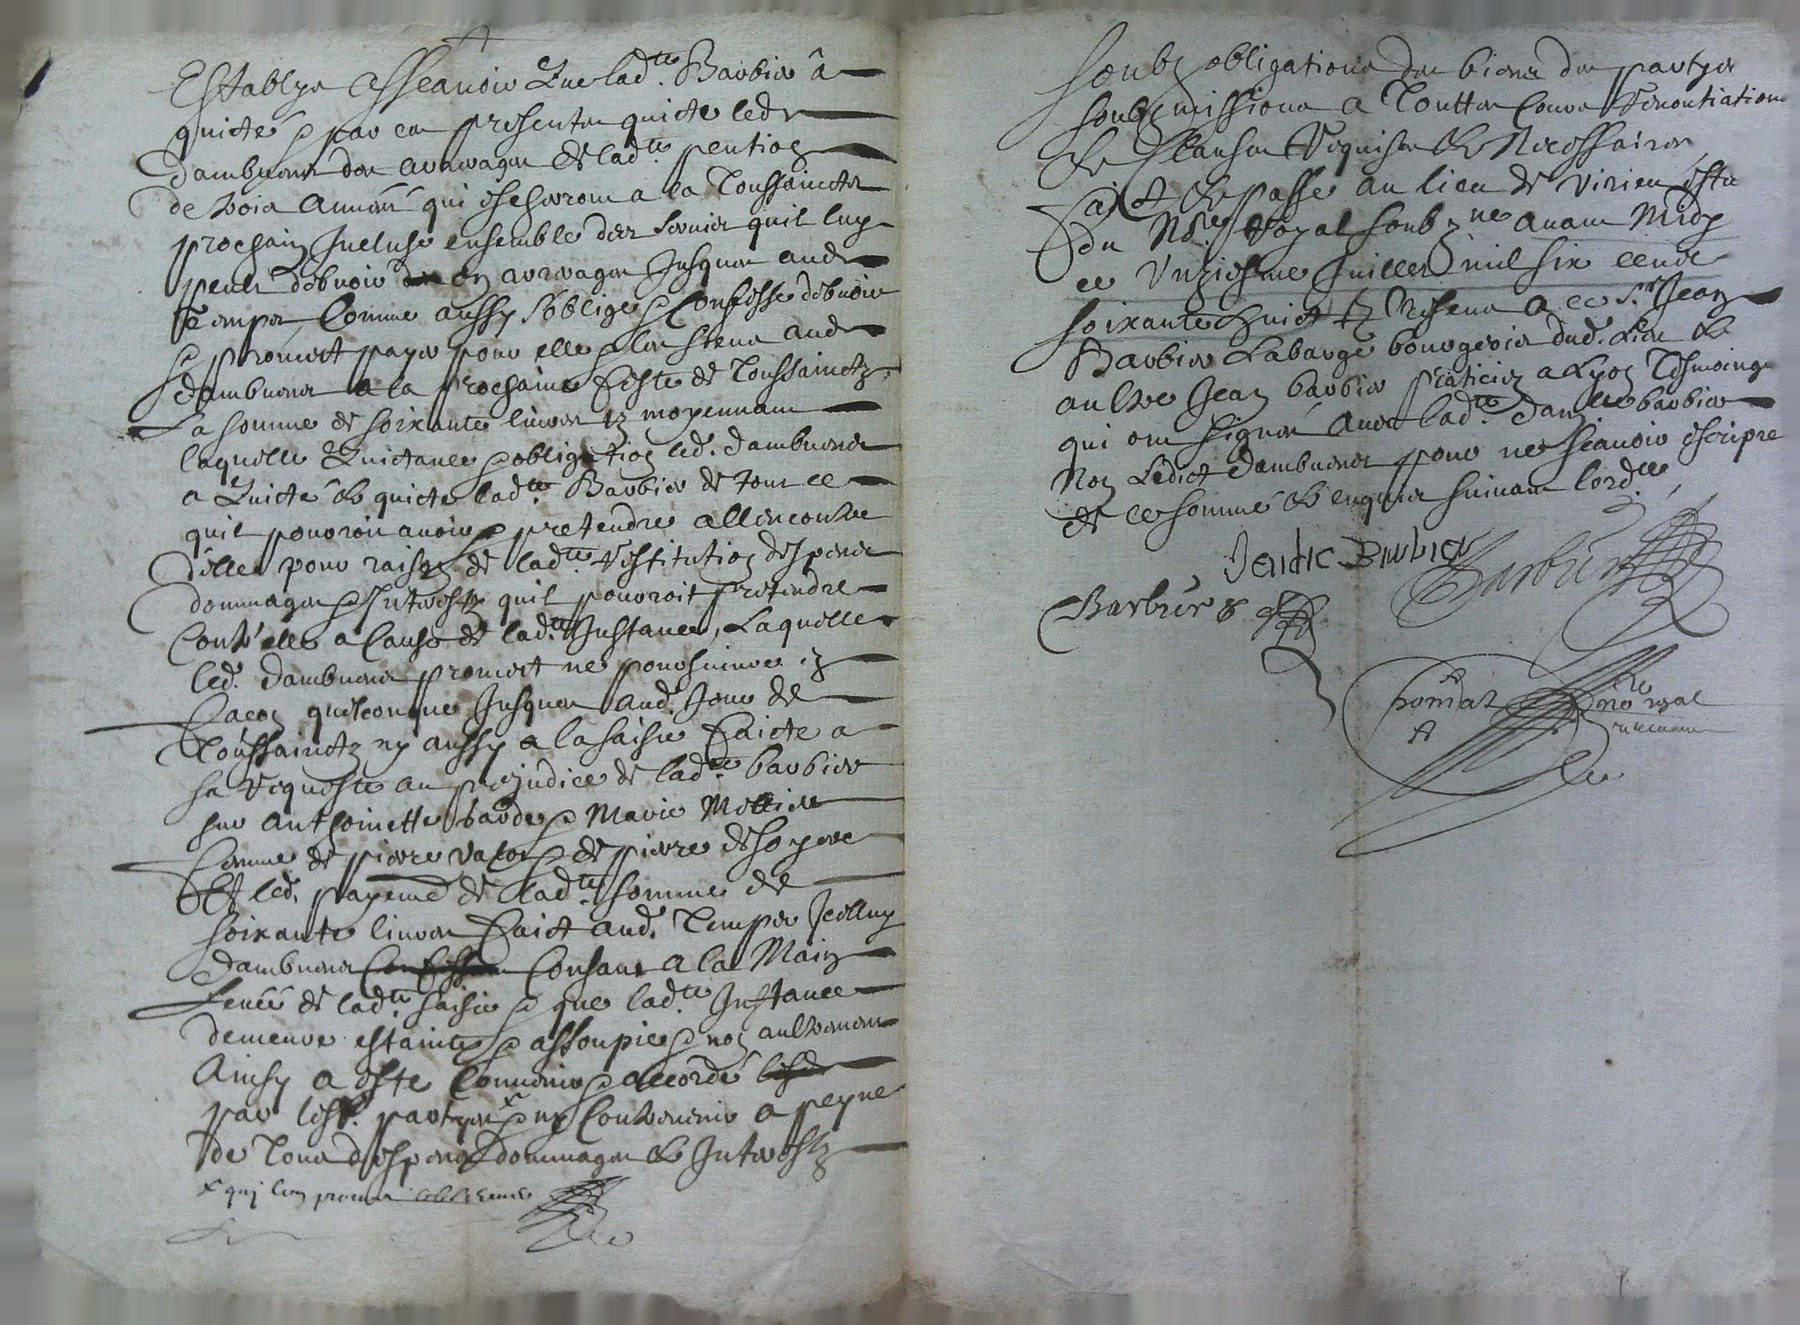 Establyes Assçavoir Que lad.te Barbier a
quicté & par ces presentes quicte led
dambuent des arrerages de lad.te pention
de trois Années qui escherront a la Toussainctz
prochain Incluse ensemble des servis quil luy
peult debvoir en arrerages Jusques aud
temps, Comme aussy s'oblige & Confesse debvoir
& promect payer pour elle & les siens aud
dambuent a la prochaine feste de Toussainctz
La somme de soixante livres tz moyennant
laquelle Quictance & obligation led. dambuent
a Quicté & quicte lad.te Barbier de tout ce
quil pouroit avoir & pretendre allencontre
d'elle pour raison de lad.te restitution despens
dommages & Intherestz quil pouroit pretendre
Contr'elle a Cause de lad.te Instance, Laquelle
led. dambuent promect ne poursuivre en
facon quelconque Jusques aud. Jour de
Toussainctz ny aussy a la saisie faicte a
sa requeste au prejudice de lad.te barbier
sur anthoinette barde & Marie Mollier
femme de pierre & de pierre
Et led. payement de lad.te somme de
soixante livres faict aud. Temps Icelluy
dambuent Consant a la Main
Levée de lad.te saisie & que lad.te Instance
demeure estainte & assoupie & non aultrement
Ainsy a esté Convenu & accordé
par lesd. partyes x & ny Contrevenir a peyne
de Tous despens dommages & Intherestz
x quj lon promis
soubz obligations des biens des partyes
soubzmissions a Touttes Cours Renontiations
& Clauses Requises & Necessaires
faict & passé au lieu de Virieu estude
du No.re Royal soubz.ne avant Midy
ce Unziesme Juillet mil six cents
soixante huict En presence de s.r Jean
Barbier Labarge bourgeois dud. Lieu &
aultre Jean barbier praticien a Lyon Tesmoings
qui ont signés Avec lad.te barbier
Non Ledict dambuent pour ne sçavoir escripre
de ce sommé & enquis suivant lord.ce
Barbier
Barbier
Barbier
no.re royal